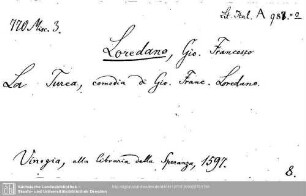 Lit. Ital. A 988.2
170 Misc. 3.
Loredano, Gio. Francesco
La Turca, comedia di Gio. Franc. Loredano.
Vinegia, alla libraria della Speranza, 1597.
8.
Sächsische Landesbibliothek -
Staats- und Universitätsbibliothek Dresden